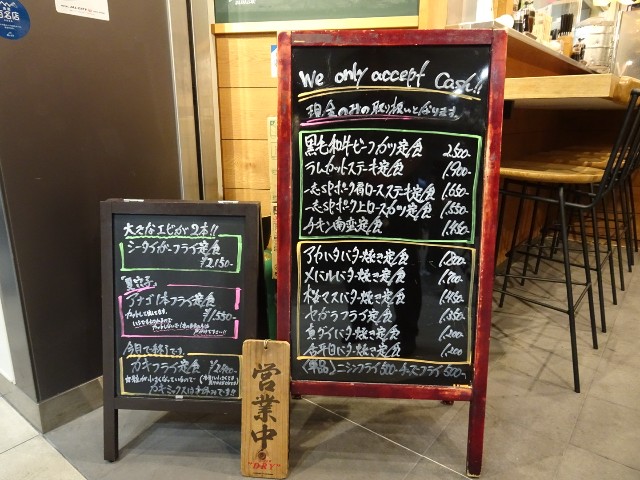 大きなエビが2本!!
シータイガーフライ定食
¥2,150-
アナゴ1本フライ定食
¥1,550-
今日で終了です。
カキフライ定食 ¥2,400-
カキミックスはお休みです!!
営業中
"DRY"
We only accept Cash!!
現金のみの取り扱いとなります。
黒毛和牛ビーフカツ定食 2,500-
ラムカットステーキ定食 1,900-
ポーク肩ロースステーキ定食 1,650-
ポーク上ロースカツ定食 1,550-
チキン南蛮定食 1,450-
アカハタバター焼き定食
メバルバター焼き定食
桜マスバター焼き定食
ヤガラフライ定食
真ダイバター焼き定食 1,200-
バター焼き定食 1,200-
(単品) ニシンフライ500- チーズフライ500-